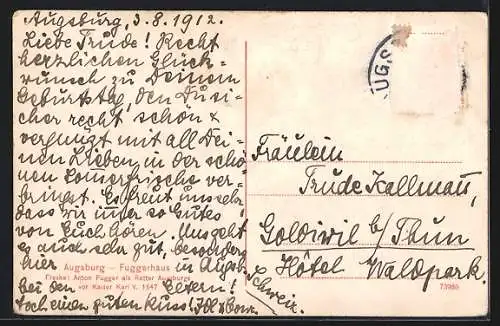 Augsburg, 3.8.1912.
Liebe Trude! Recht
herzlichen Glück-
wunsch zu Deinem
Geburtstag, den Du si-
cher recht schön &
vergnügt mit all Dei-
nen Lieben in der schö-
nen Sommerfrische ver-
bringst. Es freut uns sehr,
dass wir immer so Gutes
von Euch hören. Uns geht
es auch sehr gut, besonders
hier in Augsb.
bei den Eltern!
Noch einen guten Kuss!
AUGS
Fräulein
Trude Kallmann,
Goldiwil b/Thun
Hôtel Waldpark.
Schweiz.
Augsburg — Fuggerhaus
Freske: Anton Fugger als Retter Augsburgs
vor Kaiser Karl V. 1547
73986